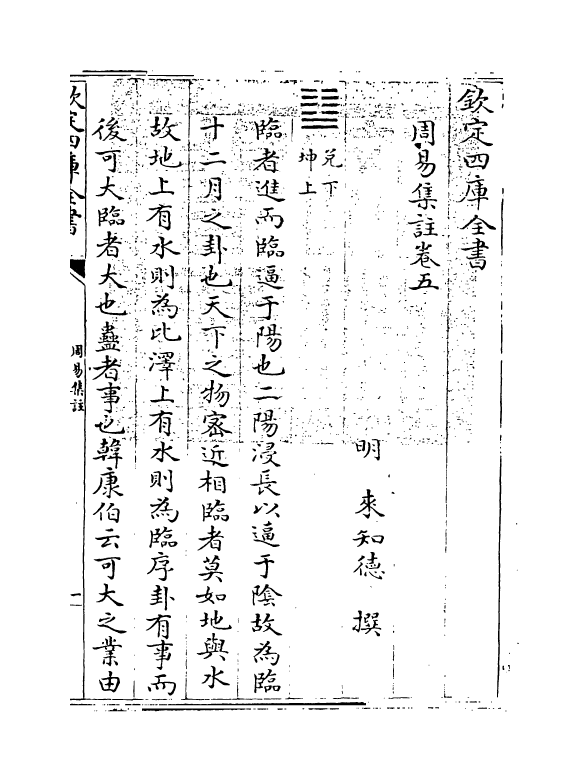 欽定四庫全書
周易集註卷五
明 來知德 撰
䷒
兑下
坤上
臨者進而臨逼于陽也二陽浸長以逼于陰故為臨
十二月之卦也天下之物密近相臨者莫如地與水
故地上有水則為比澤上有水則為臨序卦有事而
後可大臨者大也蠱者事也韓康伯云可大之業由
欽定四庫全書
周易集註
一